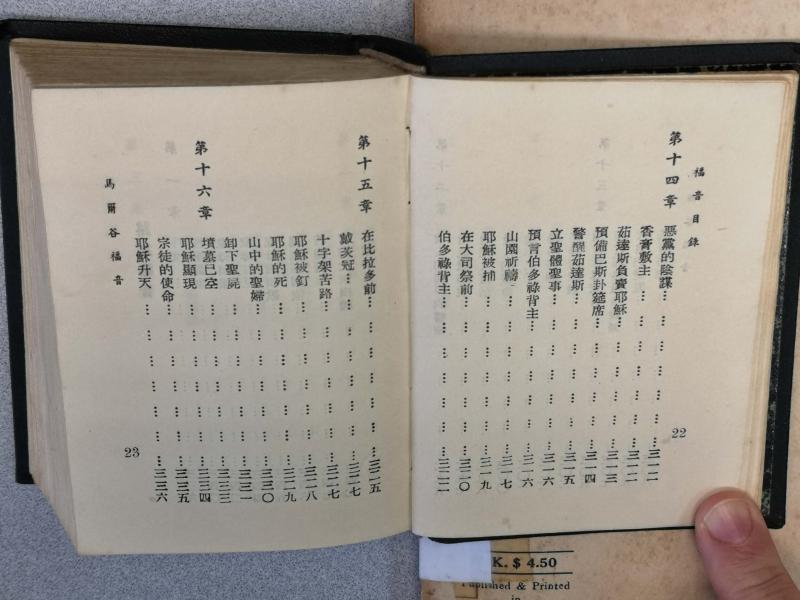 福音目錄
第十四章
惡黨的陰謀… … … … … … 三一二
香膏敷主… … … … … … 三一二
茹達斯負賣耶穌… … … … … 三一三
預備巴斯卦筵席… … … … … 三一四
警醒茹達斯… … … … … … 三一五
立聖體聖事… … … … … … 三一六
預言伯多祿背主… … … … … 三一六
山園祈禱… … … … … … 三一七
耶穌被捕… … … … … … 三一九
在大司祭前… … … … … … 三二〇
伯多祿背主… … … … … … 三二二
22
第十五章
在比拉多前… … … … … … 三二五
戴茨冠… … … … … … … 三二七
十字架苦路… … … … … … 三二七
耶穌被釘… … … … … … 三二八
耶穌的死… … … … … … 三二九
山中的聖婦… … … … … … 三三〇
卸下聖屍… … … … … … 三三一
第十六章
墳墓已空… … … … … … 三三三
耶穌顯現… … … … … … 三三四
宗徒的使命… … … … … … 三三五
耶穌升天… … … … … … 三三六
馬爾谷福音
23
K. $ 4.50
Published & Printed
in